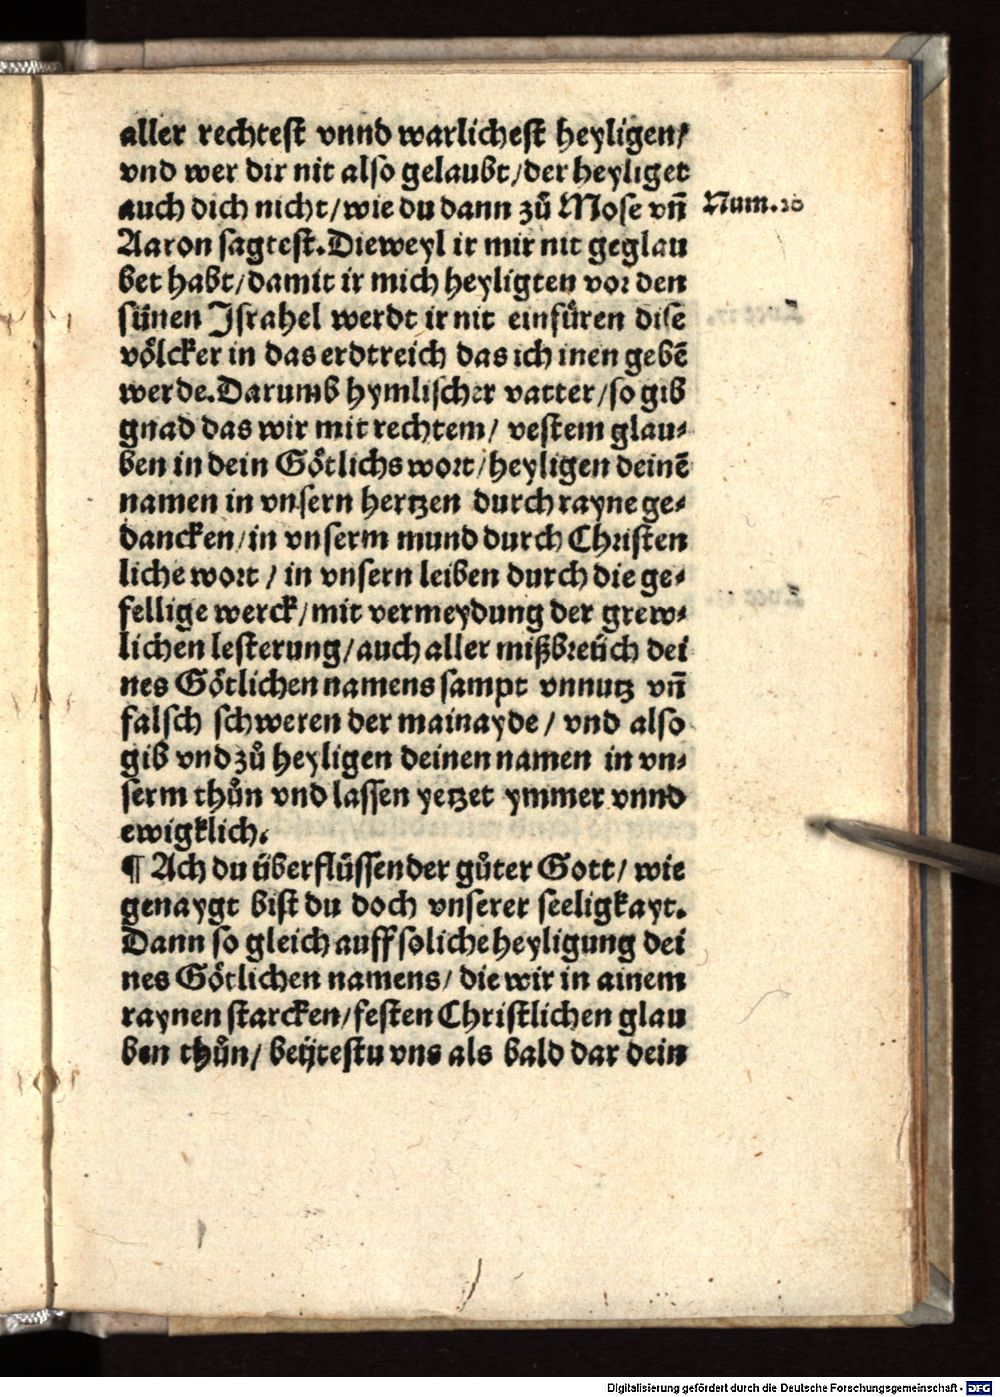 aller rechtest vnnd warlichest heyligen/
vnd wer dir nit also gelaubt/der heyliget
auch dich nicht/wie du dann zů Mose vñ
Num.20
Aaron sagtest.Dieweyl ir mir nit geglau
bet habt/damit ir mich heyligten vor den
sünen Jsrahel werdt ir nit einfüren dise
völcker in das erdtreich das ich inen gebē
werde.Darumb hymlischer vatter/so gib
gnad das wir mit rechtem/ vestem glau⸗
ben in dein Götlichs wort/heyligen deinē
namen in vnsern hertzen durch rayne ge⸗
dancken/in vnserm mund durch Christen
liche wort/ in vnsern leiben durch die ge⸗
fellige werck/mit vermeydung der grew⸗
lichen lesterung/auch aller mißbreüch dei
nes Götlichen namens sampt vnnutz vñ
falsch schweren der mainayde/ vnd also
gib vnd zů heyligen deinen namen in vn⸗
serm thůn vnd lassen yetzet ymmer vnnd
ewigklich.
¶ Ach du überflüssender gůter Gott/ wie
genaygt bist du doch vnserer seeligkayt.
Dann so gleich auff soliche heyligung dei
nes Götlichen namens/ die wir in ainem
raynen starcken/festen Christlichen glau
ben thůn/ beütestu vns als bald dar dein
Digitalisierung gefördert durch die Deutsche Forschungsgemeinschaft - DFG